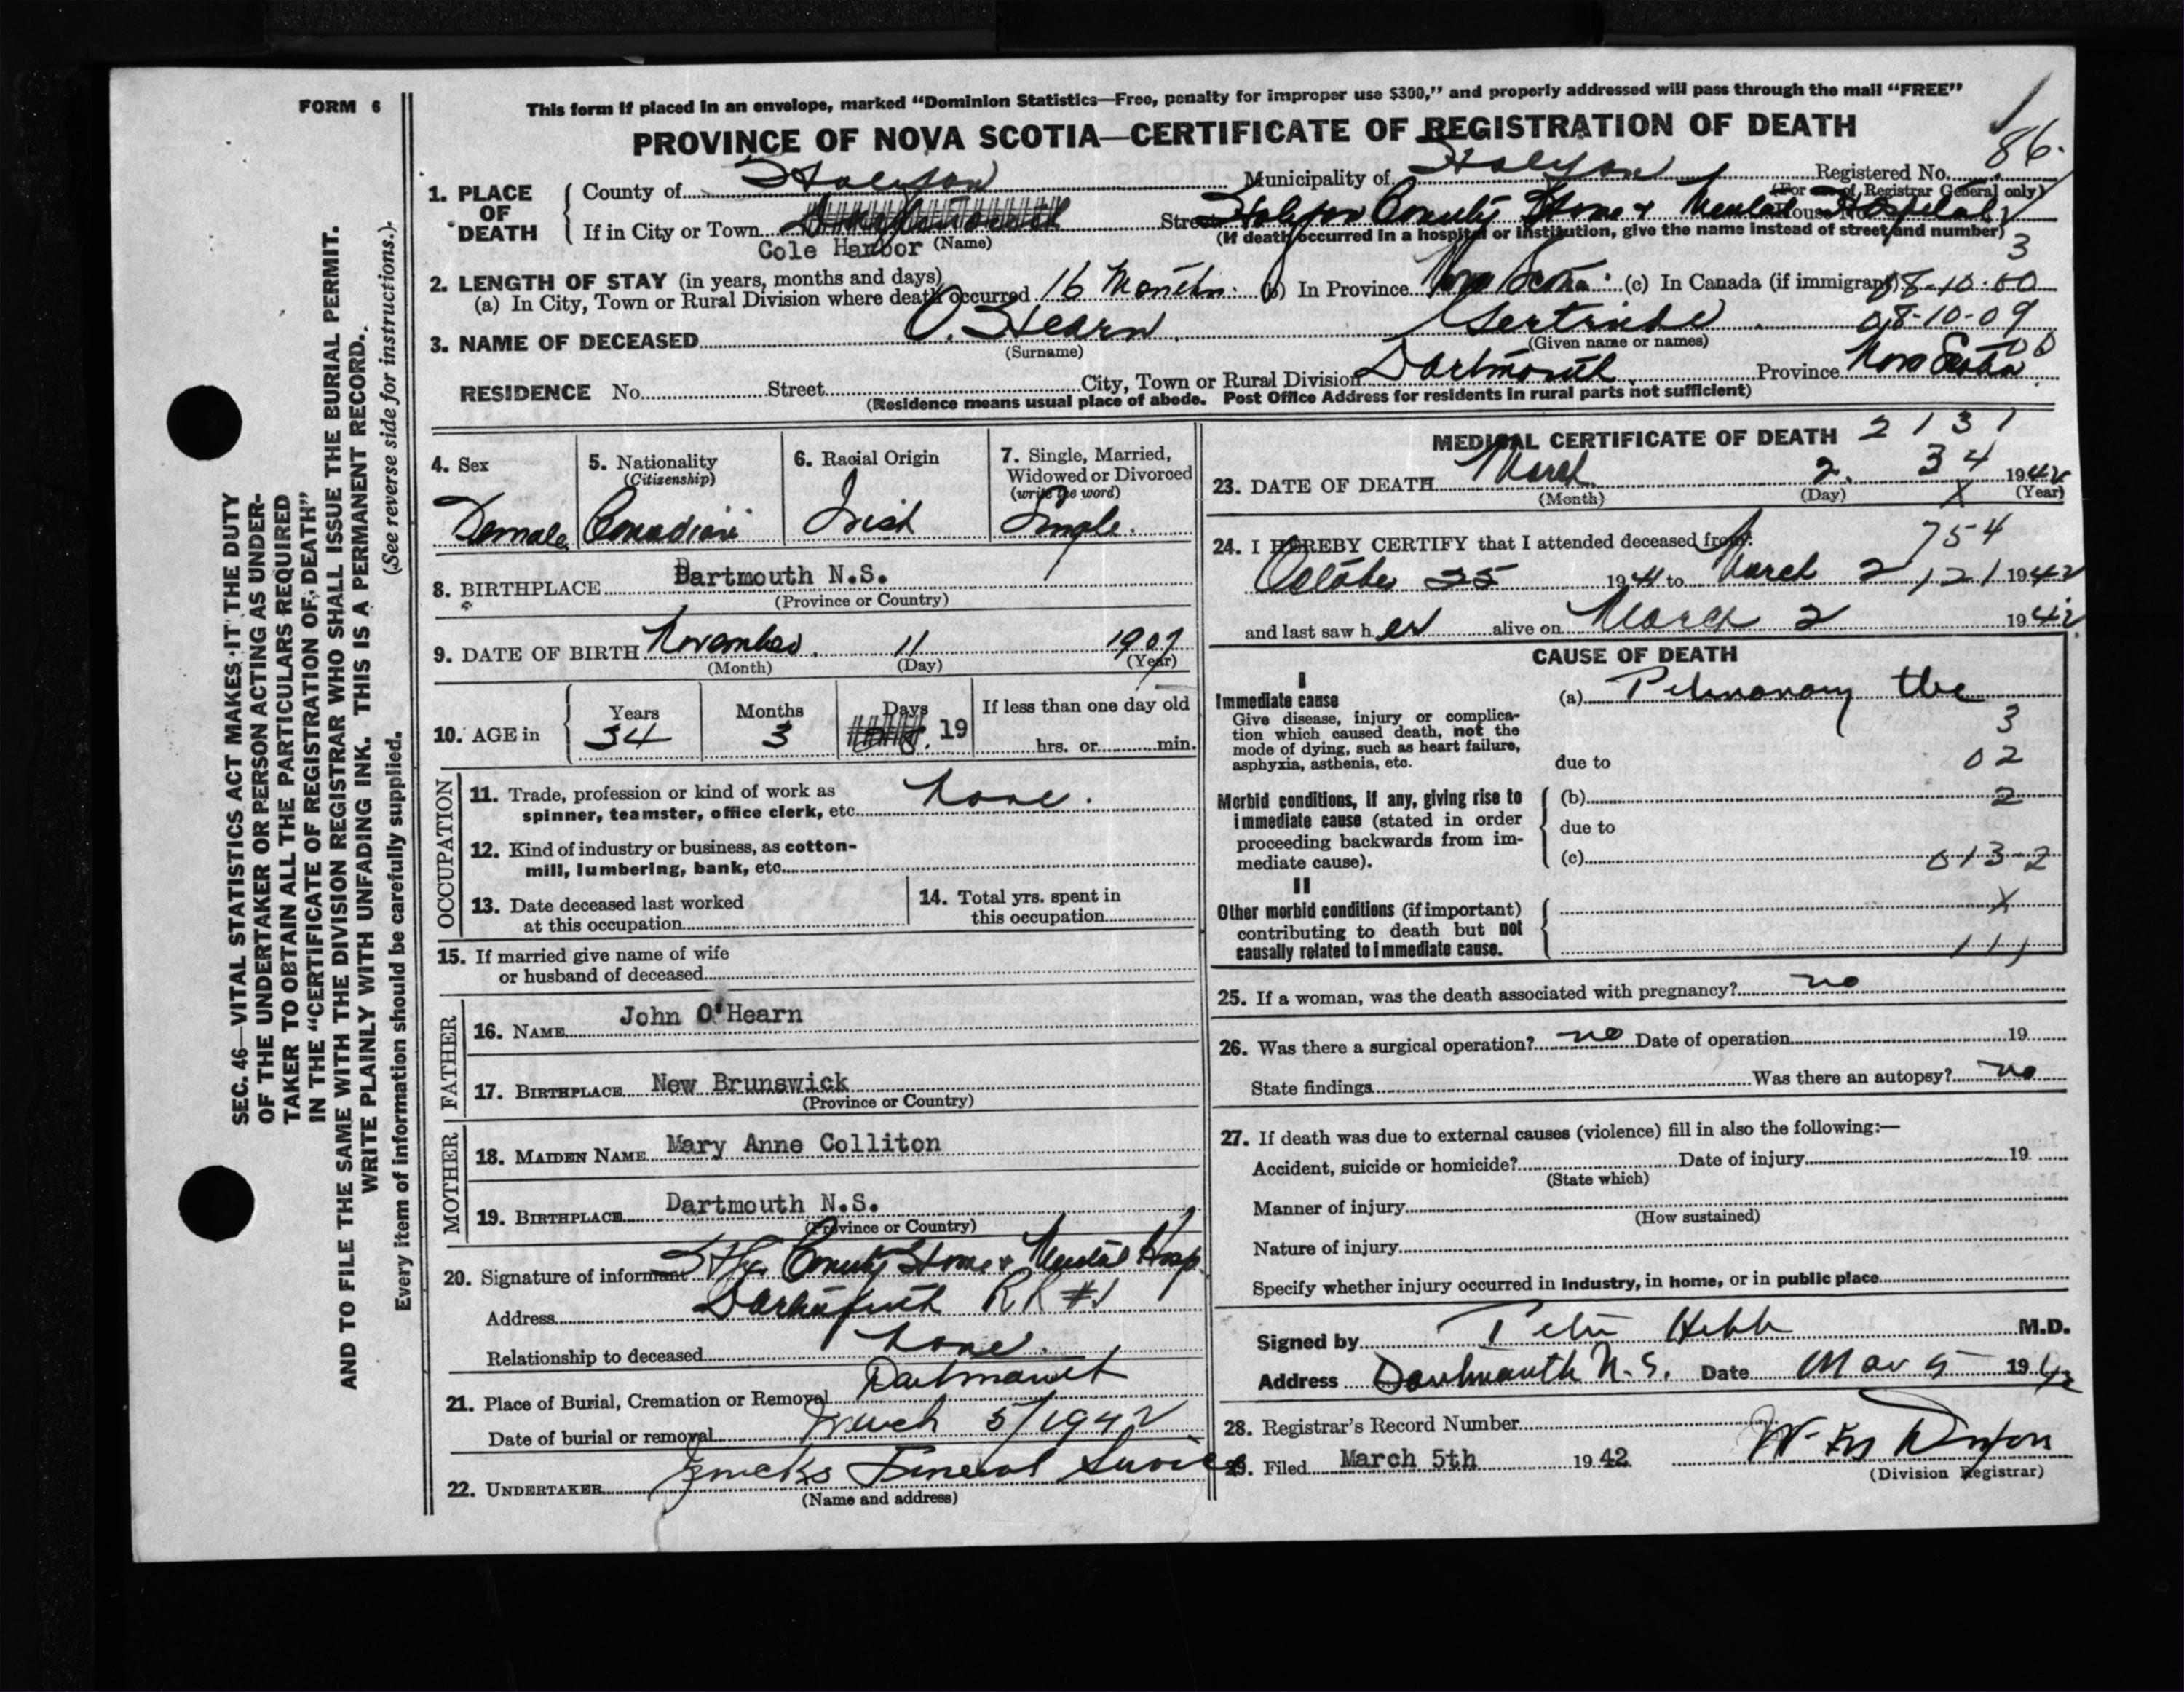 FORM 6
This form if placed in an envelope, marked "Dominion Statistics—Free, penalty for improper use $300," and properly addressed will pass through the mail "FREE"
PROVINCE OF NOVA SCOTIA—CERTIFICATE OF REGISTRATION OF DEATH
86.
1. PLACE OF DEATH
County of Halifax Municipality of Halifax Registered No.
(For use of Registrar General only)
If in City or Town Street Halifax County Home & Mental Hospital House No.
Cole Harbor (Name) (If death occurred in a hospital or institution, give the name instead of street and number)
3
2. LENGTH OF STAY (in years, months and days)
(a) In City, Town or Rural Division where death occurred 16 Months. (b) In Province Nova Scotia. (c) In Canada (if immigrant) 08-10-00
3. NAME OF DECEASED O.Hearn Gertrude 08-10-09
(Surname) (Given name or names)
RESIDENCE No. Street City, Town or Rural Division Dartmouth Province Nova Scotia
(Residence means usual place of abode. Post Office Address for residents in rural parts not sufficient)
4. Sex
Female
5. Nationality
(Citizenship)
Canadian
6. Racial Origin
Irish
7. Single, Married,
Widowed or Divorced
(write the word)
Single.
8. BIRTHPLACE Dartmouth N.S.
(Province or Country)
9. DATE OF BIRTH November 11 1907
(Month) (Day) (Year)
10. AGE in
Years Months Days If less than one day old
34 3 19 hrs. or min.
OCCUPATION
11. Trade, profession or kind of work as
spinner, teamster, office clerk, etc. none.
12. Kind of industry or business, as cotton-
mill, lumbering, bank, etc.
13. Date deceased last worked
at this occupation
14. Total yrs. spent in
this occupation
15. If married give name of wife
or husband of deceased
FATHER
16. NAME John O'Hearn
17. BIRTHPLACE New Brunswick
(Province or Country)
MOTHER
18. MAIDEN NAME Mary Anne Colliton
19. BIRTHPLACE Dartmouth N.S.
(Province or Country)
20. Signature of informant Hfx County Home & Mental Hosp.
Address Dartmouth RR #1
Relationship to deceased none.
21. Place of Burial, Cremation or Removal Dartmouth
Date of burial or removal March 5/1942
22. UNDERTAKER Funeral Service
(Name and address)
MEDICAL CERTIFICATE OF DEATH 2131
34
23. DATE OF DEATH March 2. 1942
(Month) (Day) (Year)
X
754
24. I HEREBY CERTIFY that I attended deceased from:
October 25 1941 to March 2 121 1942
and last saw her alive on March 2 1942
CAUSE OF DEATH
I
Immediate cause
Give disease, injury or complica-
tion which caused death, not the
mode of dying, such as heart failure,
asphyxia, asthenia, etc.
(a) Pulmonary tbc
3
due to 02
Morbid conditions, if any, giving rise to
immediate cause (stated in order
proceeding backwards from im-
mediate cause).
(b) 2
due to
(c) 013-2
II
Other morbid conditions (if important)
contributing to death but not
causally related to immediate cause.
X
111
25. If a woman, was the death associated with pregnancy? no
26. Was there a surgical operation? no Date of operation 19
State findings Was there an autopsy? no
27. If death was due to external causes (violence) fill in also the following:—
Accident, suicide or homicide? Date of injury 19
(State which)
Manner of injury
(How sustained)
Nature of injury
Specify whether injury occurred in industry, in home, or in public place
Signed by Peter Hebb M.D.
Address Dartmouth N.S. Date Mar 5 1942
28. Registrar's Record Number
29. Filed March 5th 1942
(Division Registrar)
SEC. 46—VITAL STATISTICS ACT MAKES IT THE DUTY
OF THE UNDERTAKER OR PERSON ACTING AS UNDER-
TAKER TO OBTAIN ALL THE PARTICULARS REQUIRED
IN THE "CERTIFICATE OF REGISTRATION OF DEATH"
AND TO FILE THE SAME WITH THE DIVISION REGISTRAR WHO SHALL ISSUE THE BURIAL PERMIT.
WRITE PLAINLY WITH UNFADING INK. THIS IS A PERMANENT RECORD.
(See reverse side for instructions.)
Every item of information should be carefully supplied.